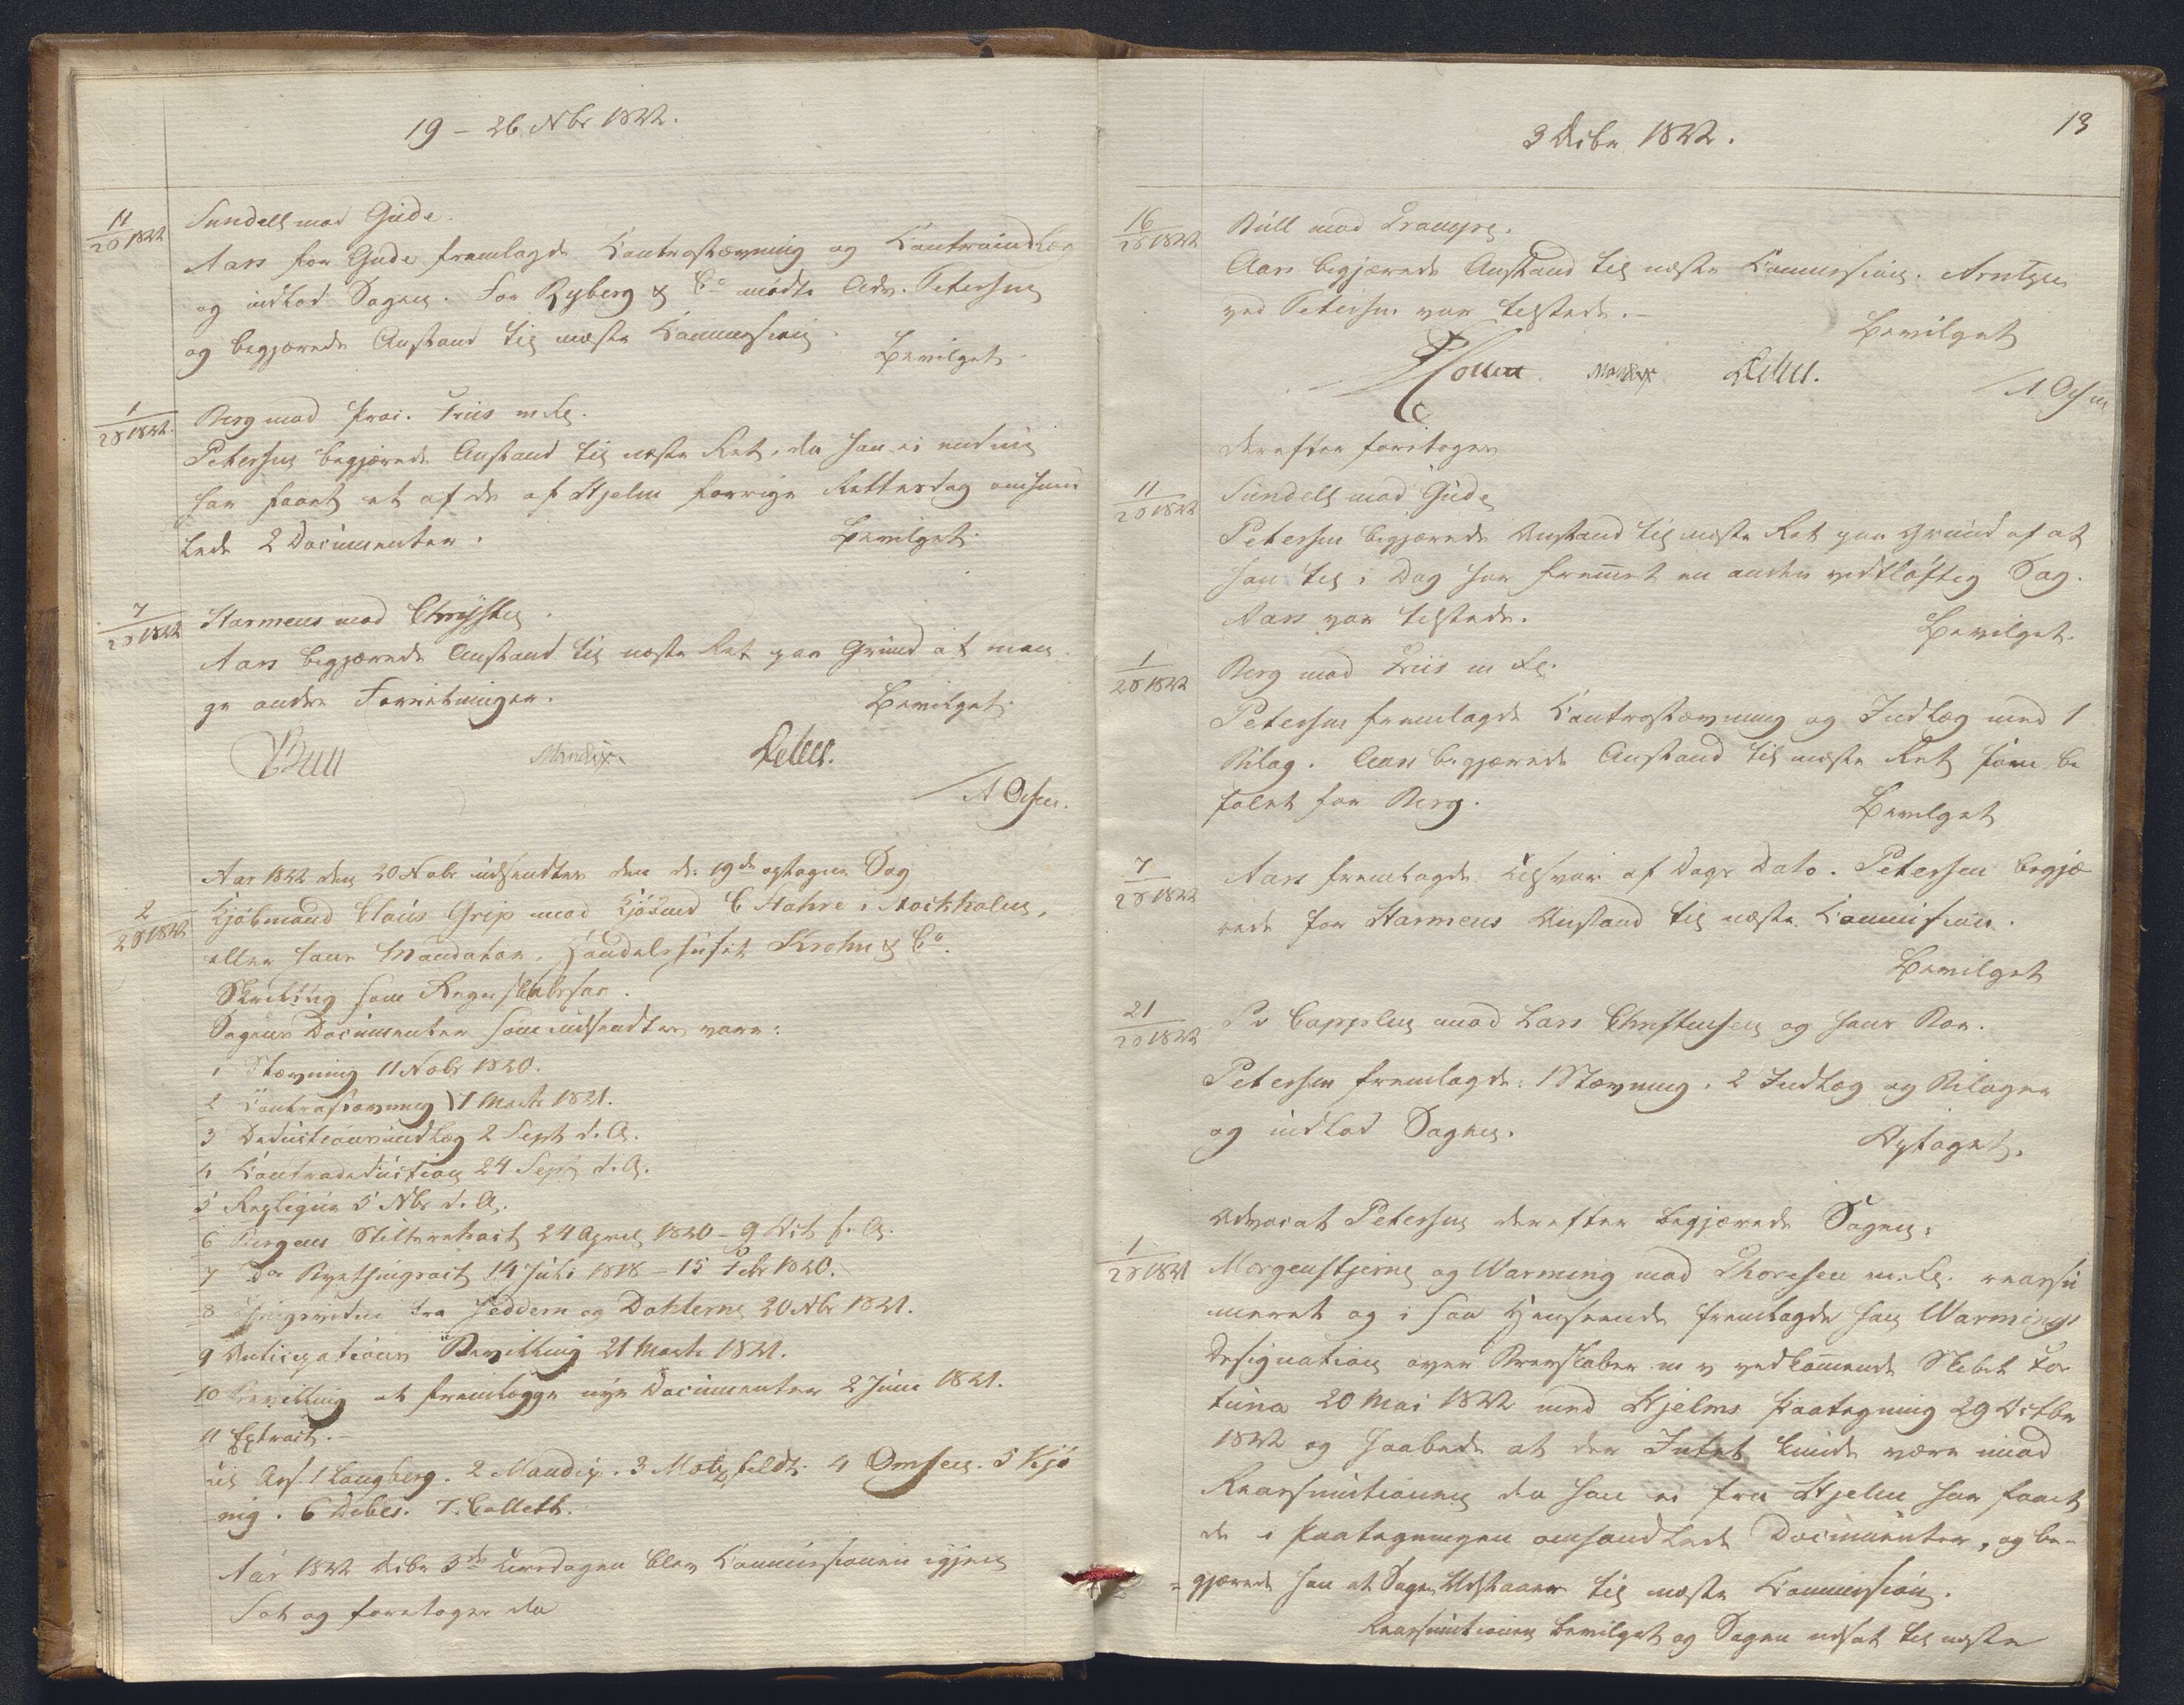 19 – 26 Nbr 1822.
11/28 1822 Sundell mod Gude.
Aars for Gude fremlagde Contrastævning og Contraindlæg
og indlod Sagen. For Ryberg & Co mødte Adv. Petersen
og begjærede Anstand til næste Commission.
Bevilget.
1/28 1822. Berg mod Friis m. fl.
Petersen begjærede Anstand til næste Ret, da han ei endnu
har faaet et af de af Hjelm forrige Rettesdag omhand
lede 2 Documenter.
Bevilget.
7/28 1822 Harmens mod
Aars begjærede Anstand til næste Ret paa Grund af man
ge andre Forretninger.
Bevilget.
Bull Mandix. Debes.
A Omsen.
Aar 1822 den 20 Nobr udsendtes den d. 19de optagne Sag
2/28 1822 Kjøbmand Claus Grip mod Kjøbmd C Hahre i Stockholm,
eller hans Mandatar, Handelshuset Krohn & Co.
som
Sagens Documenter som udsendtes vare:
1 Stævning 11 Nobr 1820.
2 Contrastævning 1 Marts 1821.
3 Deductionsindlæg 2 Sept d. A.
4 Contradeduction 24 Sept d. A.
5 Repliqve 5 Nbr d. A.
6 Bergens Stiftsretsact 24 April 1820 – 9 Oct s. A.
7 Do Byethingsact 14 Juli 1818 – 15 Febr 1820.
8 fra Jeddern og Dahlerne 20 Nbr 1821.
9 Anticipations Bevilling 21 Marts 1821.
10 Bevilling at fremlægge nye Documenter 2 Juni 1821.
11 Extract. –
til Ass. 1 Langberg. 2 Mandix. 3 Motzfeldt. 4 Omsen. 5 Kjø
nig. 6 Debes. 7. Collett.
Aar 1822 Decbr 3de Tirsdagen blev Commissionen igjen
sat og foretoges da
3 Decbr 1822.
13
16/28 1822 Bull mod
Aars begjærede Anstand til næste Commission. Arntzen
ved Petersen var tilstede. –
Bevilget
Mandix Debes.
A Omsen
Derefter foretoges
11/28 1822 Sundell mod Gude
Petersen begjærede Anstand til næste Ret paa Grund af at
han til i Dag har fremmet en anden vidtløftig Sag.
Aars var tilstede.
Bevilget.
1/28 1822 Berg mod Friis m fl.
Petersen fremlagde Contrastævning og Indlæg med 1
Bilag. Aars begjærede Anstand til næste Ret som be
falet for Berg.
Bevilget
7/28 1822 Aars fremlagde Tilsvar af Dags Dato. Petersen begjæ
rede for Harmens Anstand til næste Commission.
Bevilget
21/28 1822 P v Cappelen mod Lars Christensen og hans Boe.
Petersen fremlagde: 1 Stævning, 2 Indlæg og Bilager
og indlod Sagen.
Optaget.
Advocat Petersen derefter begjærede Sagen:
1/28 1821 Morgenstjerne og Warming mod Thoresen m. fl. reassu
meret og i saa Henseende fremlagde han Warmings
Designation over Brevskaber m v vedkommende Skibet For
tuna 20 Mai 1822 med Hjelms Paategning 29 Octbr
1822 og haabede at der Intet kunde være imod
Reassumtionen da han ei fra Hjelm har faaet
de i Paategningen omhandlede Documenter, og be-
gjærede han at Sagen Udstaaer til næste Commission.
Reassumtionen bevilget og Sagen udsat til næste